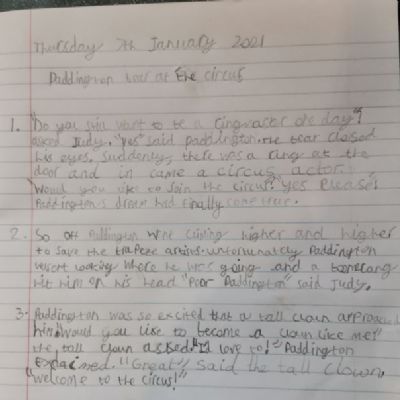 Thursday 7th January 2021
Paddington bear at the circus
1. "Do you still want to be a ringmaster one day?"
asked Judy. "yes" said paddington. the bear closed
his eyes. Suddenly, there was a ring at the
door and in came a circus actor.
Would you like to Join the circus? "yes Please"
Paddington's dream had finally come true.
2. So off Paddington went climing higher and higher
to save the trapeze artists. unfortunately Paddington
wasent looking where he was going and a boomerang
hit him on his head "Poor Paddington" said Judy.
3. Paddington was so excited that a tall clown approached
him. "would you like to become a clown like me?"
the tall clown asked. "I'd love to!" Paddington
Exclaimed. "Great" said the tall clown,
"welcome to the circus!"